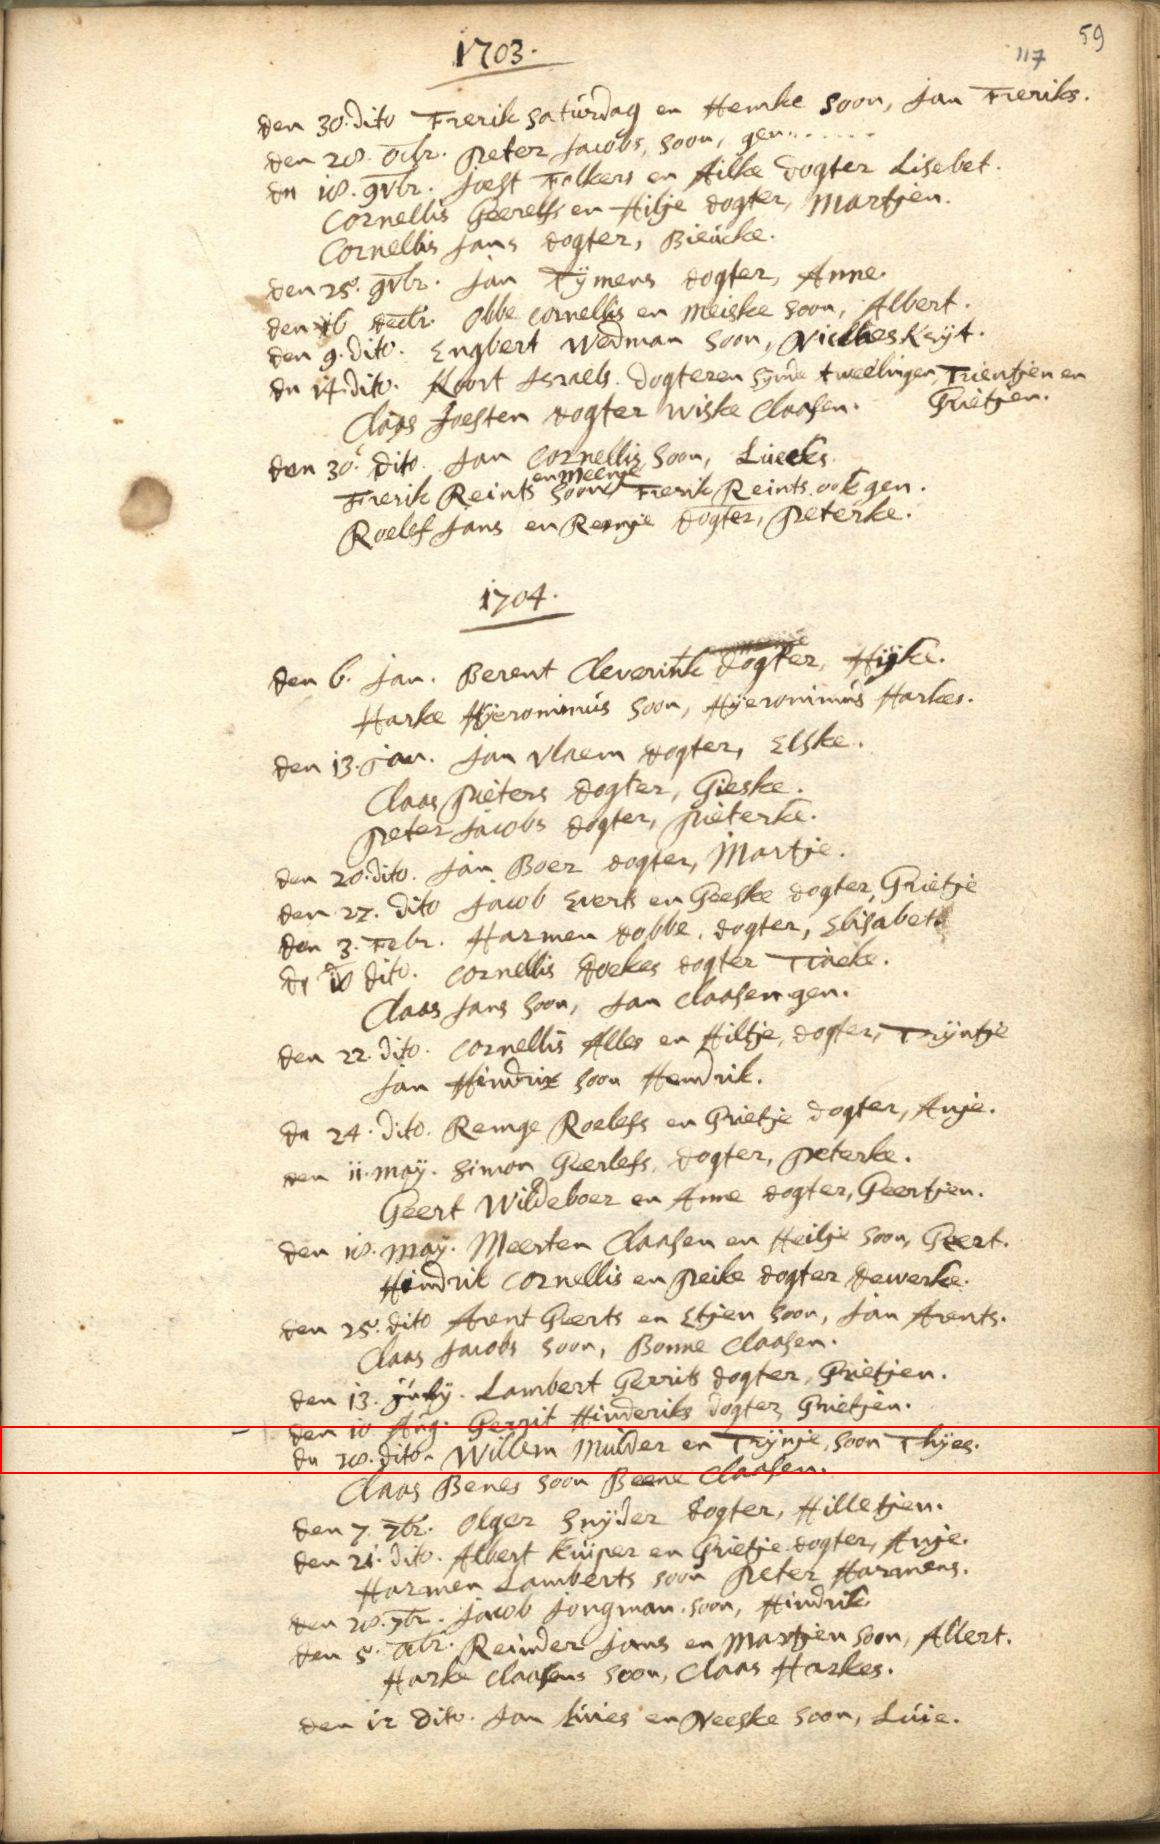 59
117
1703.
den 30. dito Frerik Saturdag en Hemke soon, Jan Freriks.
den 28. octbr. Peter Jacobs, soon, gen.......
dn 18. 9vbr. Joest Folkers en Ailke dogter Lisebet.
Cornellis Geerelfs en Hilje dogter, Martjen.
Cornellis Jans dogter,
den 25. 9vbr. Jan Tijmens dogter, Anne.
den decbr. Obbe Cornellis en Meiske soon, Albert.
den 9. dito. Engbert Wedman soon,
dn 14. dito. Koort Israels. dogteren sijnde tweelingen, Trientjen en
Grietjen.
Claas Joesten dogter Wiske Claasen.
den 30. dito. Jan Cornellis soon, Lueks.
en Meenje
Frerik Reints soon, Frerik Reints ook gen.
Roelef Jans en Renje dogter, Peterke.
1704.
den 6. Jan. Berent Cleverink dogter, Hijke.
Harke Hijeronimus soon, Hijeronimus Harkes.
den 13. Jan. Jan Vlaem dogter, Elske.
Claas Pieters dogter, Gieske.
Peter Jacobs dogter, Pieterke.
den 20. dito. Jan Boer dogter, Martje.
den 27. dito Jacob Everts en Geeske dogter, Grietje
den 3. Febr. Harmen Dobbe. dogter, Elisabet
dn 10 dito. Cornellis Doekes dogter
Claas Jans soon, Jan Claasen gen.
den 22. dito. Cornellis Alles en Hiltje, dogter, Trijntje
Jan Hindrix soon Hendrik.
dn 24. dito. Remge Roelefs en Grietje dogter, Anje.
den 11. maij. Simon Geerlefs, dogter, Peterke.
Geert Wildeboer en Anne dogter, Geertjen.
den 18. maij. Meerten Claasen en Heilje soon, Geert.
Hindrik Cornellis en Peike dogter Dewerke.
den 25. dito Arent Geerts en Etjen soon, Jan Arents.
Claas Jacobs soon, Bonne Claasen.
den 13. Lambert Gerrits dogter, Grietjen.
den 10 Aug. Gerrit Hinderiks dogter Grietjen.
dn dito. Willem Mulder en Trijnje, soon Thijes.
Claas Benes soon Beene Claasen.
den 7. 7br. Olger Snijder dogter, Hilletjen.
den 21. dito. Albert Kuiper en Grietje dogter, Anje.
Harmen Lamberts soon Peter Harmens.
den 28. 7br. Jacob Jongman soon, Hindrik
den 5. octbr. Reinder Jans en Martjen soon, Allert.
Harke Claasens soon, Claas Harkes.
den 12 dito. Jan Luies en Neeske soon, Luie.